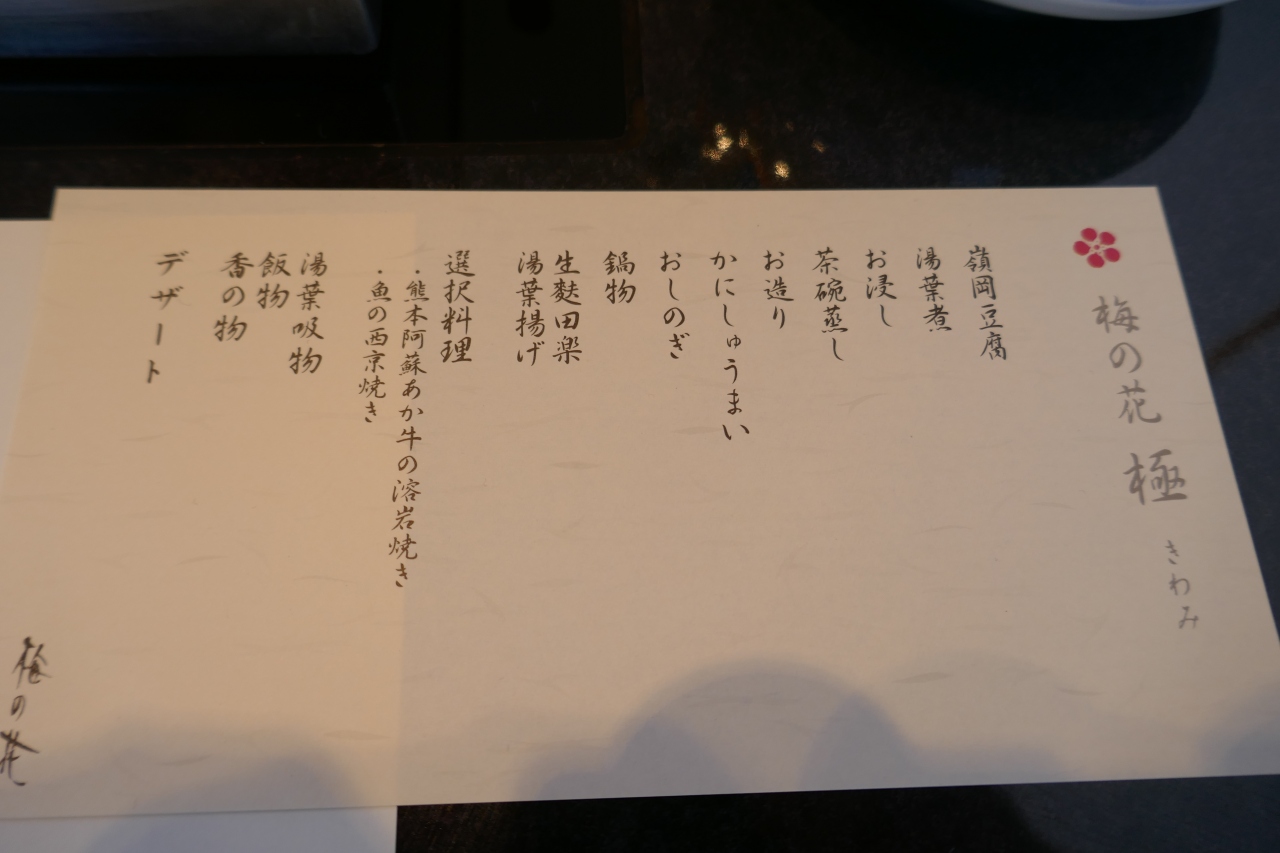 梅の花 極 きわみ
嶺岡豆腐
湯葉煮
お浸し
茶碗蒸し
お造り
かにしゅうまい
おしのぎ
鍋物
生麩田楽
湯葉揚げ
選択料理
・熊本阿蘇あか牛の溶岩焼き
・魚の西京焼き
湯葉吸物
飯物
香の物
デザート
梅の花